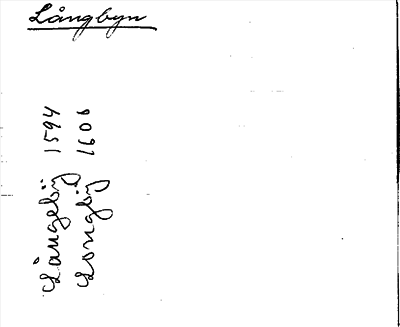 Långbyn
Långebÿ 1594
Longbÿ 1606